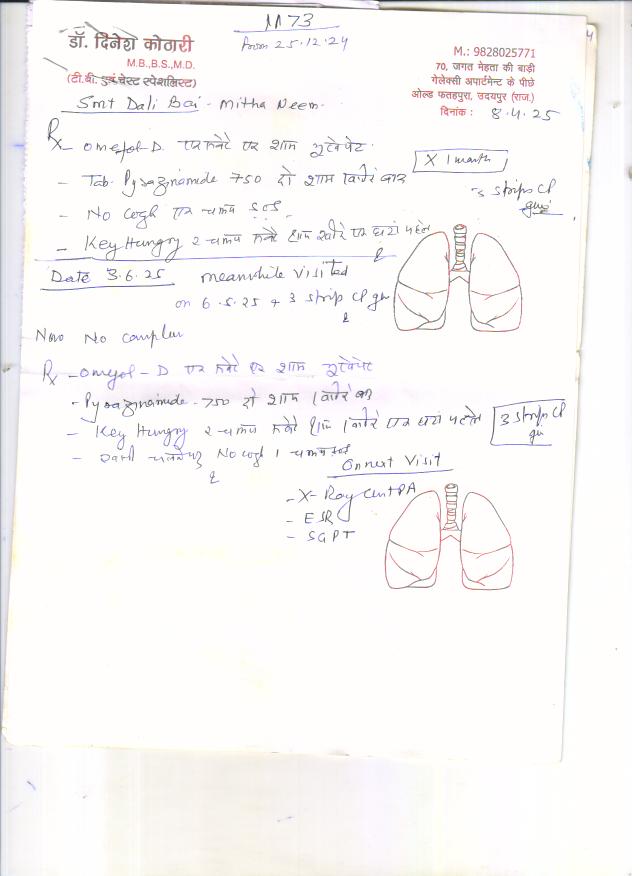 M 73
From 25.12.24
डॉ. दिनेश कोठारी
M.B.,B.S.,M.D.
(टी.बी. एवं चेस्ट स्पेशलिस्ट)
M.: 9828025771
70, जगत मेहता की बाड़ी
गेलेक्सी अपार्टमेन्ट के पीछे
ओल्ड फतहपुरा, उदयपुर (राज.)
दिनांक : 8.4.25
Smt Dali Bai - Mitha Neem
Rx - omefol-D एक सवेरे एक शाम
X 1 month
- Tab. Pyrazinamide 750 दो शाम
3 strips CP
- No cogh एक चम्मच SOS
- Key Hungry 2 चम्मच सवेरे शाम एक घंटा पहले
Date 3.6.25 meanwhile visited
on 6.5.25 + 3 strip CP
Now No complen
Rx - omefol-D एक सवेरे एक शाम
- Pyrazinamide 750 दो शाम
- Key Hungry 2 चम्मच सवेरे शाम एक घंटा पहले
3 strips CP
- No cogh 1 चम्मच
On next Visit
- X-Ray Chest PA
- ESR
- SGPT